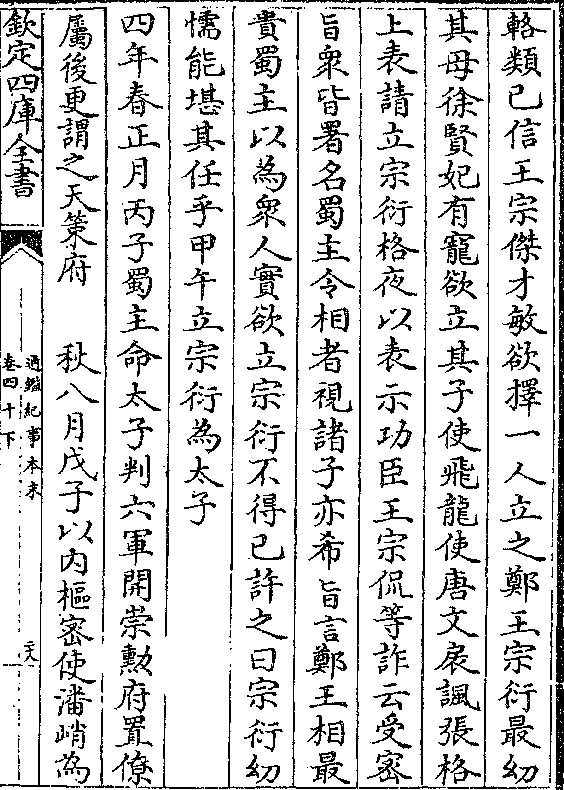 輅類己信王宗傑才敏欲擇一人立之鄭王宗衍最幼
其母徐賢妃有寵欲立其子使飛龍使唐文扆諷張格
上表請立宗衍格夜以表示功臣王宗侃等詐云受密
旨衆皆署名蜀主令相者視諸子亦希旨言鄭王相最
貴蜀主以為衆人實欲立宗衍不得已許之曰宗衍幼
懦能堪其任乎甲午立宗衍為太子
四年春正月丙子蜀主命太子判六軍開崇勲府置僚
屬後更謂之天策府　秋八月戊子以内樞密使潘峭為
欽定四庫全書
通鑑紀事本末
卷四十下
二八